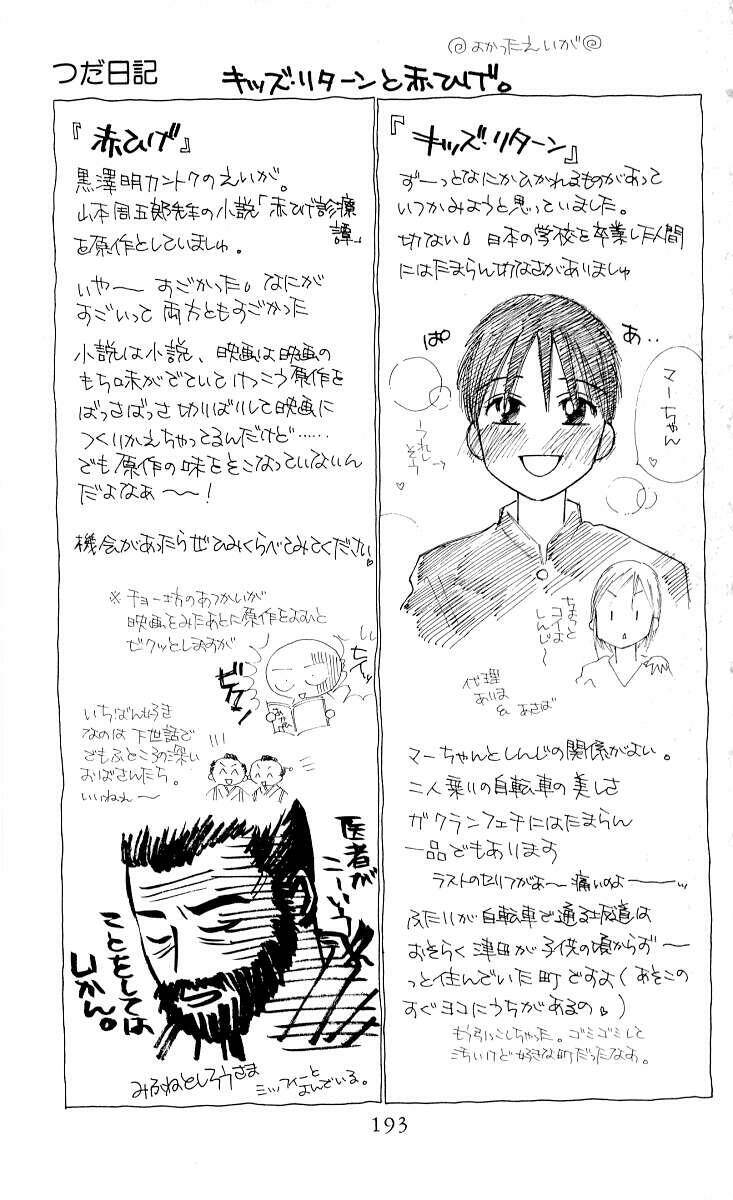 つだ日記
◎よかったえいが◎
キッズ・リターンと赤ひげ。
『キッズ・リターン』
ずーっとなにかひかれるものがあって
いつかみようと思っていました。
切ない。日本の学校を卒業した人間
にはたまらん切なさがありましゅ
ぱ
あ‥
マーちゃん
♡
うれしそう
♡
ちょっと
コイよ
しんじ〜
代理
あいは
& あさば
マーちゃんとしんじの関係がよい。
二人乗りの自転車の美しさ
ガクランフェチにはたまらん
一品でもあります
ラストのセリフがよ〜痛いのよーーー
ふたりが自転車で通る坂道は
おそらく津田が子供の頃からずー
っと住んでいた町ですよ(あそこの
すぐヨコにうちがあるの。)
もう引っこしちゃった。ゴミゴミして
きたないけど好きな町だったなぁ。
『赤ひげ』
黒澤明カントクのえいが。
山本周五郎先生の小説「赤ひげ診療
譚」
を原作としていましゅ。
いや〜 すごかった。なにが
すごいって両方ともすごかった
小説は小説、映画は映画の
もち味がでていてけっこう原作を
ばっさばっさ切りばりして映画に
つくりかえちゃってるんだけど……
でも原作の味をそこなっていないん
だよなぁ〜!
機会があったらぜひみくらべてみてください
※チョー坊のあつかいが
映画をみたあとに原作をよむと
ビクッとしますが
ヒィッ
ビクッ
いちばんすき
なのは下世話で
でもふところの深い
おばさんたち。
いいねぇ〜
医者が
こーいう
ことをしては
いかん。
みふねとしろうさま
ミッフィーと
よんでいる。
193